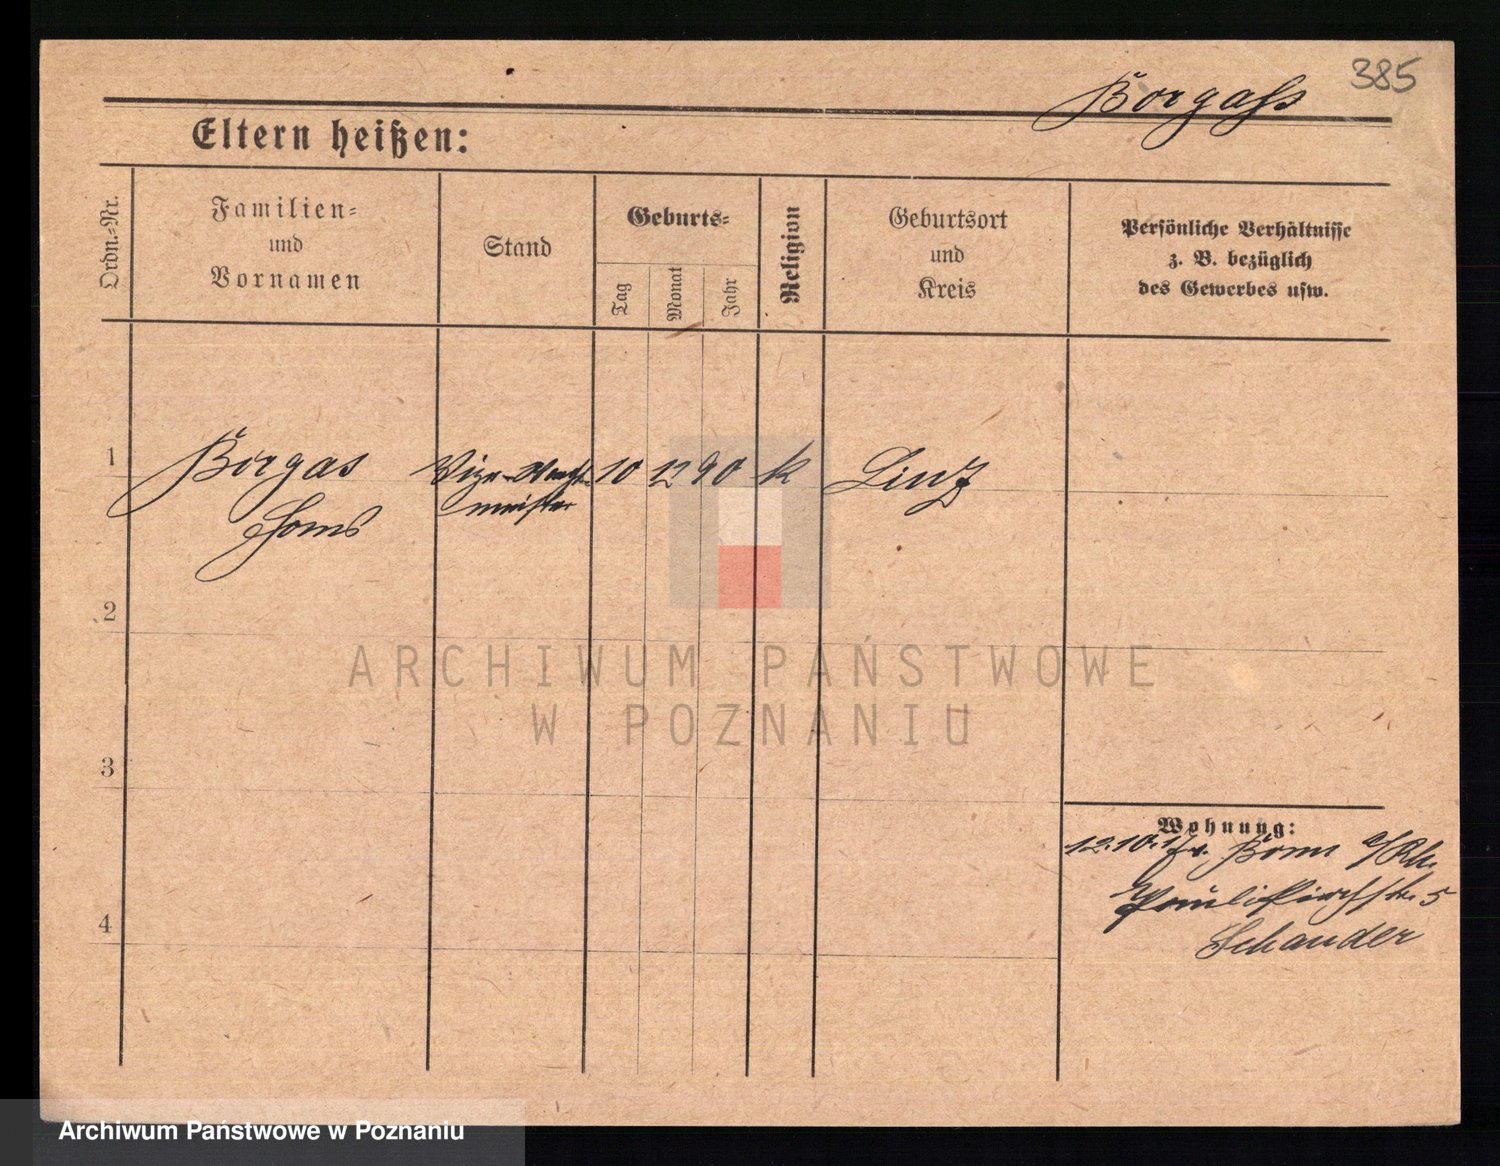 385
Borgass
Eltern heißen:
Ordn.-Nr.
Familien-
und
Vornamen
Stand
Geburts-
Tag
Monat
Jahr
Religion
Geburtsort
und
Kreis
Persönliche Verhältnisse
z. B. bezüglich
des Gewerbes usw.
1
Borgas
Vize-Wacht-
meister
10
12
90
k
Linz
2
3
4
Wohnung:
12.10.17 v. Bonn a/Rh.
Paulikirchstr. 5
Schander
ARCHIWUM PAŃSTWOWE
W POZNANIU
Archiwum Państwowe w Poznaniu